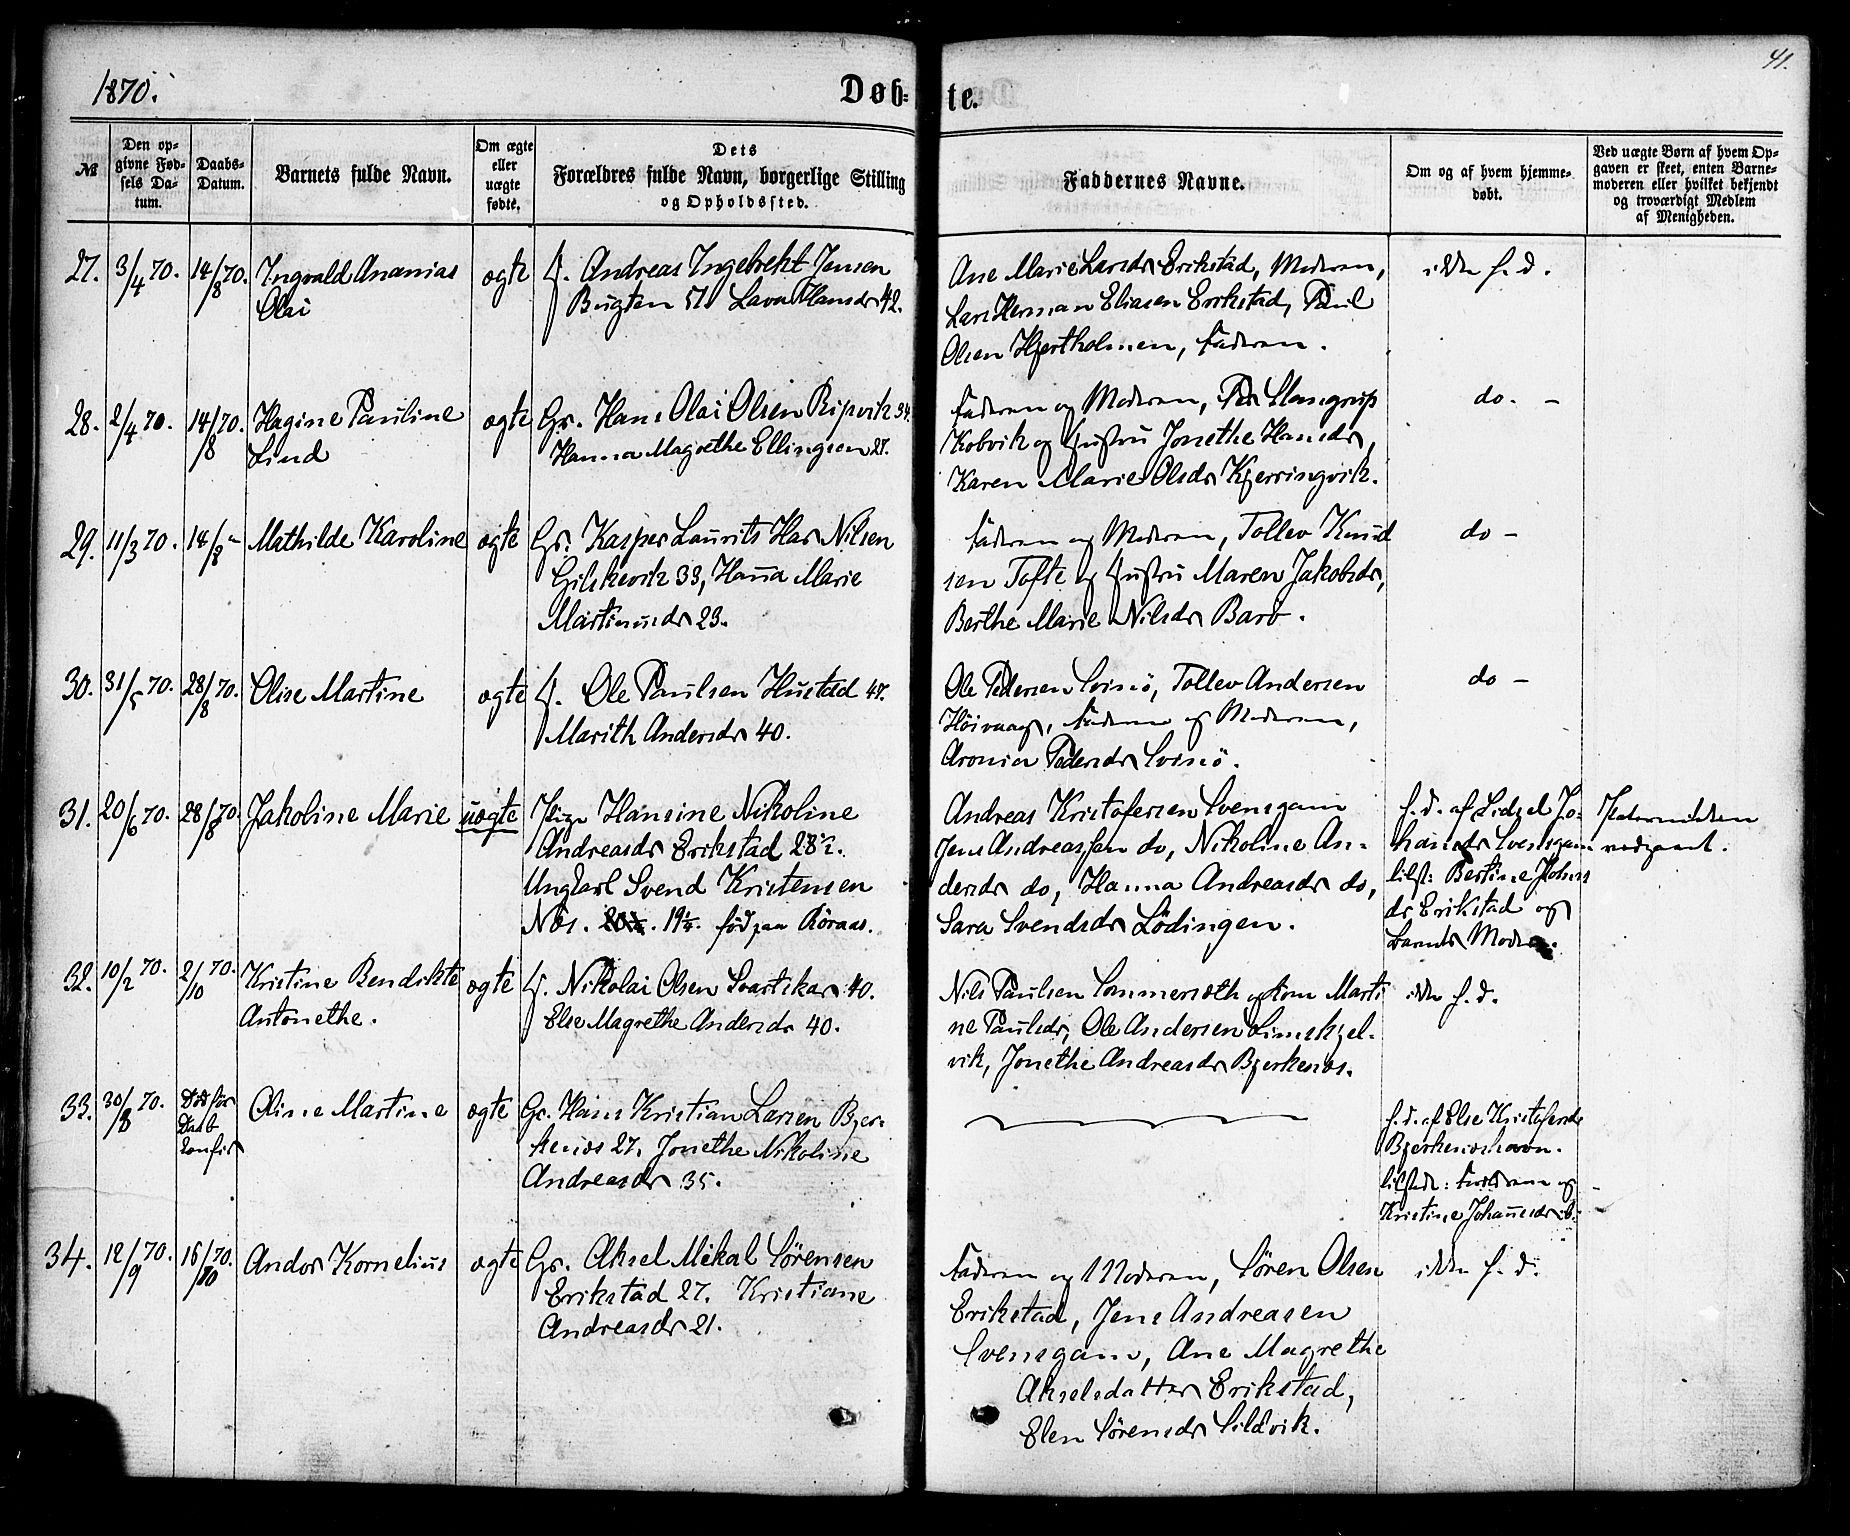 1870.
Døb-
te.
41.
№
Den op-
givne Fød-
sels Da-
tum.
Daabs-
Datum.
Barnets fulde Navn.
Om ægte
eller
uægte
fødte.
Dets
Forældres fulde Navn, borgerlige Stilling
og Opholdssted.
Faddernes Navne.
Om og af hvem hjemme-
døbt.
Ved uægte Børn af hvem Op-
gaven er skeet, enten Barne-
moderen eller hvilket bekjendt
og troværdigt Medlem
af Menigheden.
27. 3/4 70. 14/8 70. Ingvald Ananias
Olai
ægte
Andreas Ingebrekt Jensen
Bugten 51 Lava Hansdr 42.
Ane Marie Larsdr Erikstad, Moderen,
Lars Herman Eliasen Erikstad, Paul
Olsen Hjertholmen, Faderen.
ikke h. d.
28. 2/4 70. 14/8 70. Hagine Pauline
Lind
ægte
Gr. Hans Olai Olsen Ripvik 34.
Hanna Magrethe Ellingsen 27.
Faderen og Moderen, Hansgrup
Kobvik og Hustru Jonethe Hansdr,
Karen Marie Olsdr Kjerringvik.
do. -
29. 11/3 70. 14/8 " Mathilde Karoline
ægte
Gr. Kasper Laurits Nilsen
33, Hanna Marie
Martinusdr 23.
Faderen og Moderen, Tollev Knud
sen Tofte og Hustru Maren Jakobsdr,
Berthe Marie Nilsdr Barö.
do -
30. 31/5 70. 28/8 70. Olise Martine
ægte
Ole Paulsen Hustad 47.
Marith Andersdr 40.
Ole Pedersen Svinö, Tollev Andersen
Höivaag, Faderen og Moderen,
Aronia Pedersdr Svinö.
do -
31. 20/6 70. 28/8 70. Jakoline Marie
uægte
Pige Hansine Nikoline
Andreasdr Erikstad 28½.
Ungkarl Svend Kristensen
Næs. 19½. fød paa Röraas.
Andreas Kristofersen Svensgam
Jens Andreassen do, Nikoline An-
dersdr do, Hanna Andreasdr do,
Sara Svendsdr Lödingen.
h. d. af Lidzel Jo-
hansdr Svensgam
tilst: Bertine Johns
dr Erikstad og
Barnets Moder.
Paterniteten
vedgaaet.
32. 10/2 70. 2/10 70. Kristine Bendikte
Antonethe.
ægte
Nikolai Olsen Svartskar 40.
Else Magrethe Andersdr 40.
Nils Paulsen Sommersæth og Kone Marti
ne Paulsdr, Ole Andersen Limskjel-
vik, Jonethe Andreasdr Bjerkenes.
ikke h. d.
33. 30/8 70. Död før
Daab
konfir
Oline Martine
ægte
Gr. Hans Kristian Larsen Bjer-
kenæs 27. Jonethe Nikoline
Andreasdr 35.
h. d. af Else Kristofersdr
Bjerkenæshavn.
tilstede: Forældrene og
Kristine Johannesdr ib:
34. 12/9 70. 16/10 70. Andor Kornelius
ægte
Gr. Aksel Mikal Sörensen
Erikstad 27. Kristiane
Andreasdr 21.
Faderen og Moderen, Sören Olsen
Erikstad, Jens Andreasen
Svensgam, Ane Magrethe
Akselsdatter Erikstad,
Elen Sörensdr Sildvik.
ikke h. d.